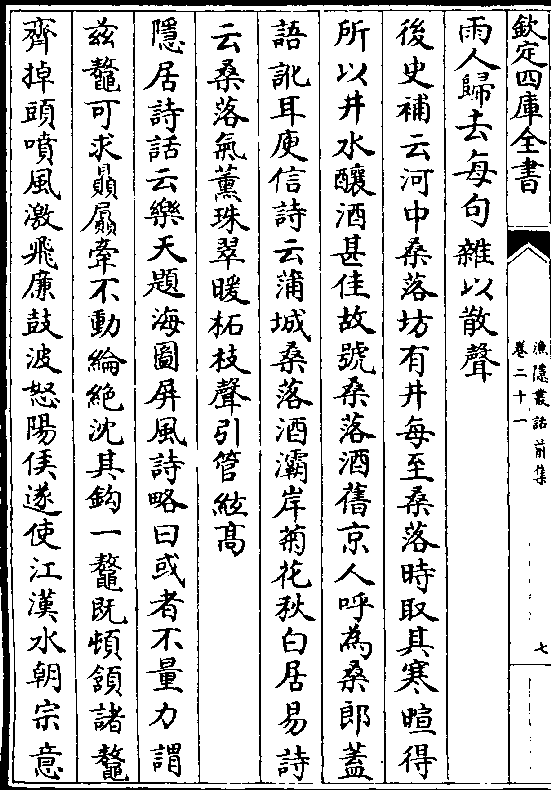 欽定四庫全書
漁隱叢話前集
卷二十一
七
雨人歸去每句雜以散聲
後史補云河中桑落坊有井每至桑落時取其寒暄得
所以井水釀酒甚佳故號桑落酒舊京人呼為桑郎蓋
語訛耳庾信詩云蒲城桑落酒灞岸菊花秋白居易詩
云桑落氣薰珠翠暖柘枝聲引管絃高
隱居詩話云樂天題海圖屏風詩略曰或者不量力謂
茲鼇可求贔屭牽不動綸絶沈其鈎一鼇既頓頷諸鼇
齊掉頭噴風激飛廉鼓波怒陽侯遂使江漢水朝宗意